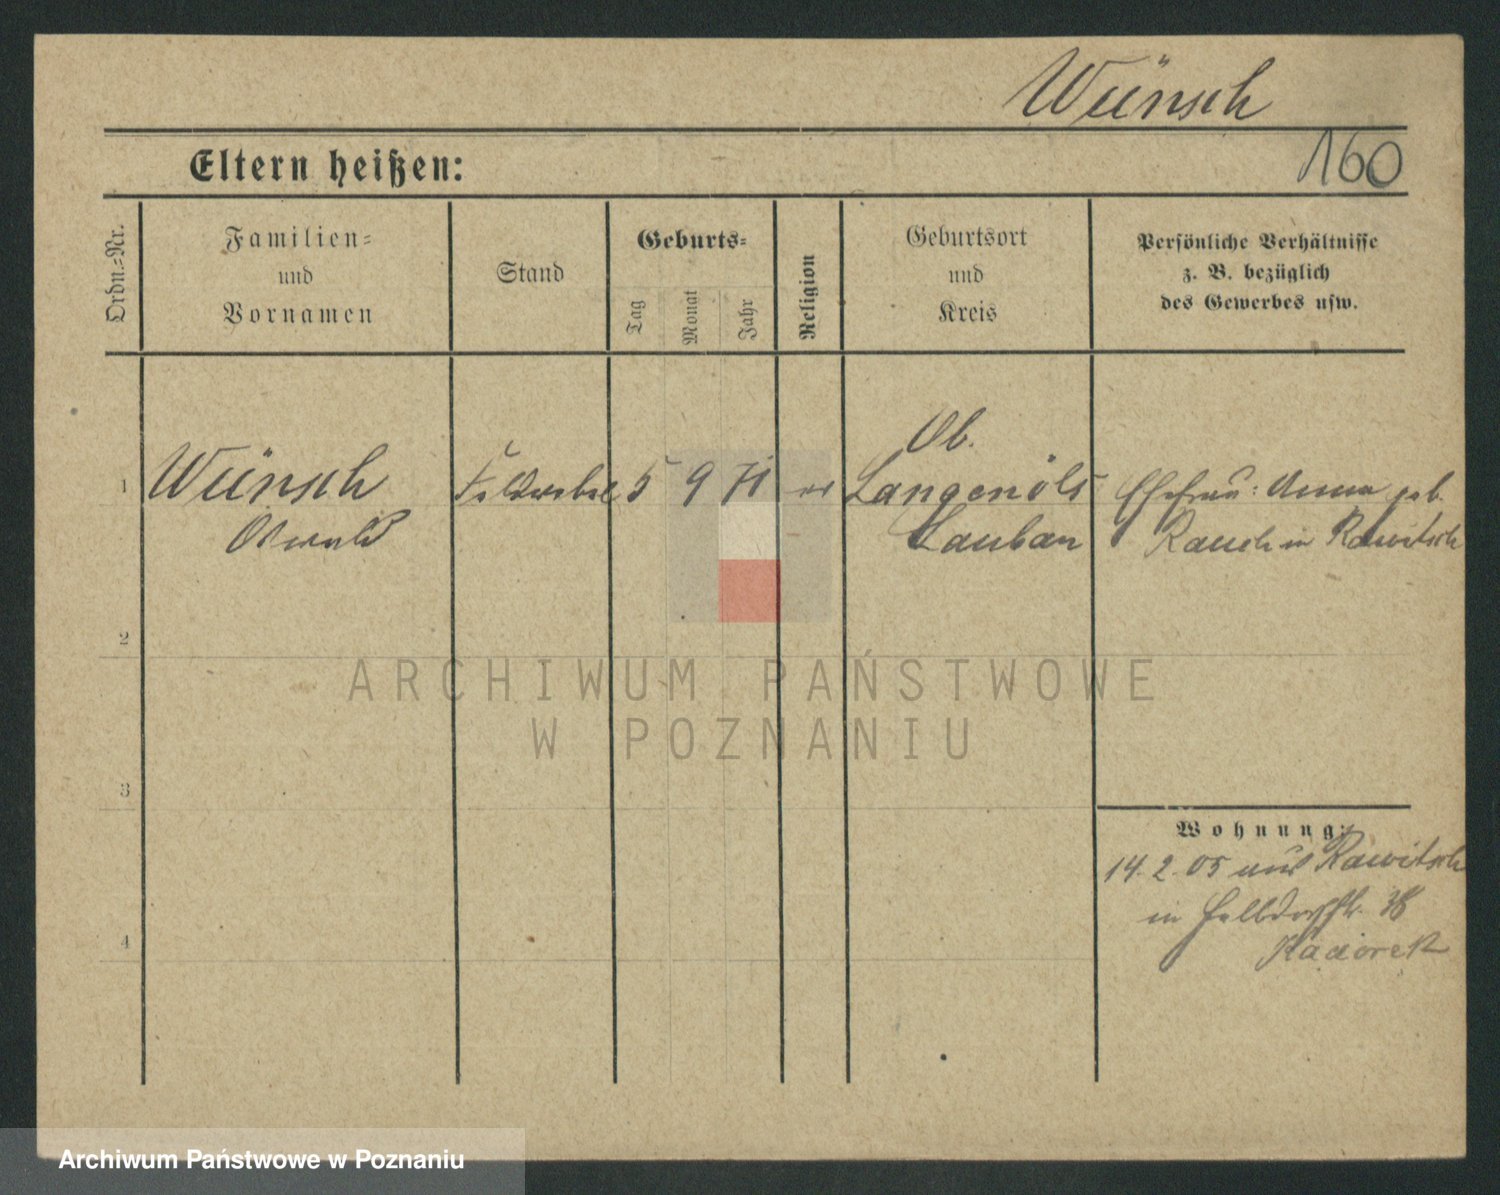 Wünsch
Eltern heißen:
160
Ordn.-Nr.
Familien-
und
Vornamen
Stand
Geburts-
Tag
Monat
Jahr
Religion
Geburtsort
und
Kreis
Persönliche Verhältnisse
z. B. bezüglich
des Gewerbes usw.
1
Wünsch
Oswald
Feldwebel
5 9 71
ev
Ob.
Langenöls
Lauban
Ehefrau: Anna geb.
Rauch in Rawitsch
2
ARCHIWUM PAŃSTWOWE
W POZNANIU
3
Wohnung:
14. 2. 05 aus Rawitsch
in
4
Archiwum Państwowe w Poznaniu